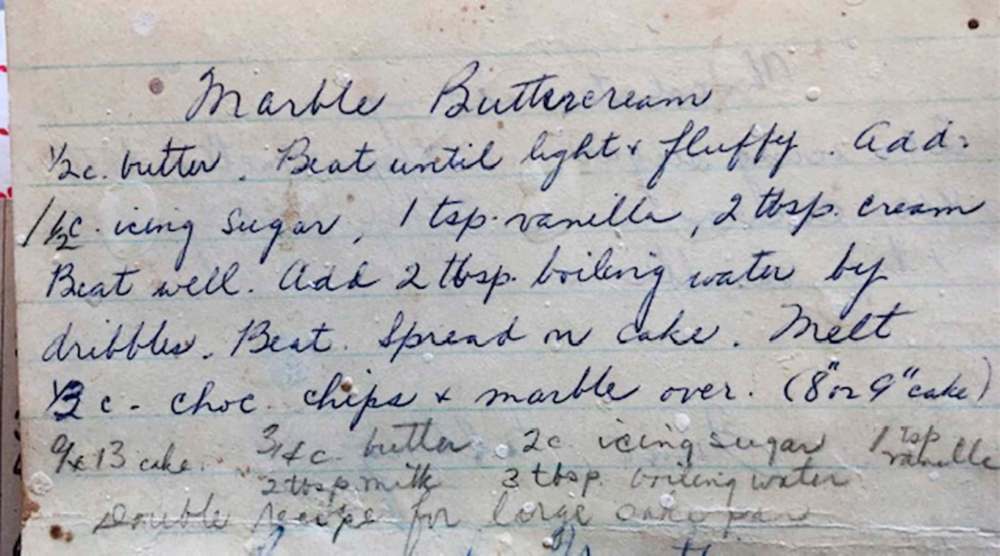 Marble Buttercream
1/2 c. butter. Beat until light & fluffy. Add:
1 1/2 c. icing sugar, 1 tsp. vanilla, 2 tbsp. cream
Beat well. Add 2 tbsp. boiling water by
dribbles. Beat. Spread on cake. Melt
c. choc. chips & marble over. (8" or 9" cake)
9x13 cake. 3/4 c. butter 2 c. icing sugar 1 tsp vanilla
2 tbsp. milk 3 tbsp. boiling water
Double recipe for large cake pan